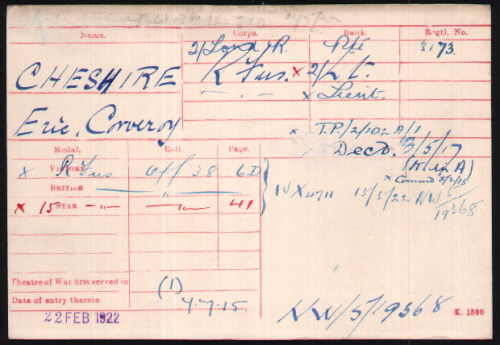 Name. Corps. Rank. Regtl. No.
2/Lond. R. Pte 3173
CHESHIRE R Fus. x 2/Lt.
Eric, Corveroy - . - x Lieut.
x T.P./2/102 A/1
Decd. 3/5/17
(K in A)
x Commd 8/2/15
Medal. Roll. Page.
x VICTORY R Fus Off 38 6D
BRITISH "
x 15 STAR -"- -"- 41
IV X 4711 15/5/22 NW 5/19368
Theatre of War first served in (1)
Date of entry therein 4-7-15.
22 FEB 1922
NW/5/19368
K. 1380